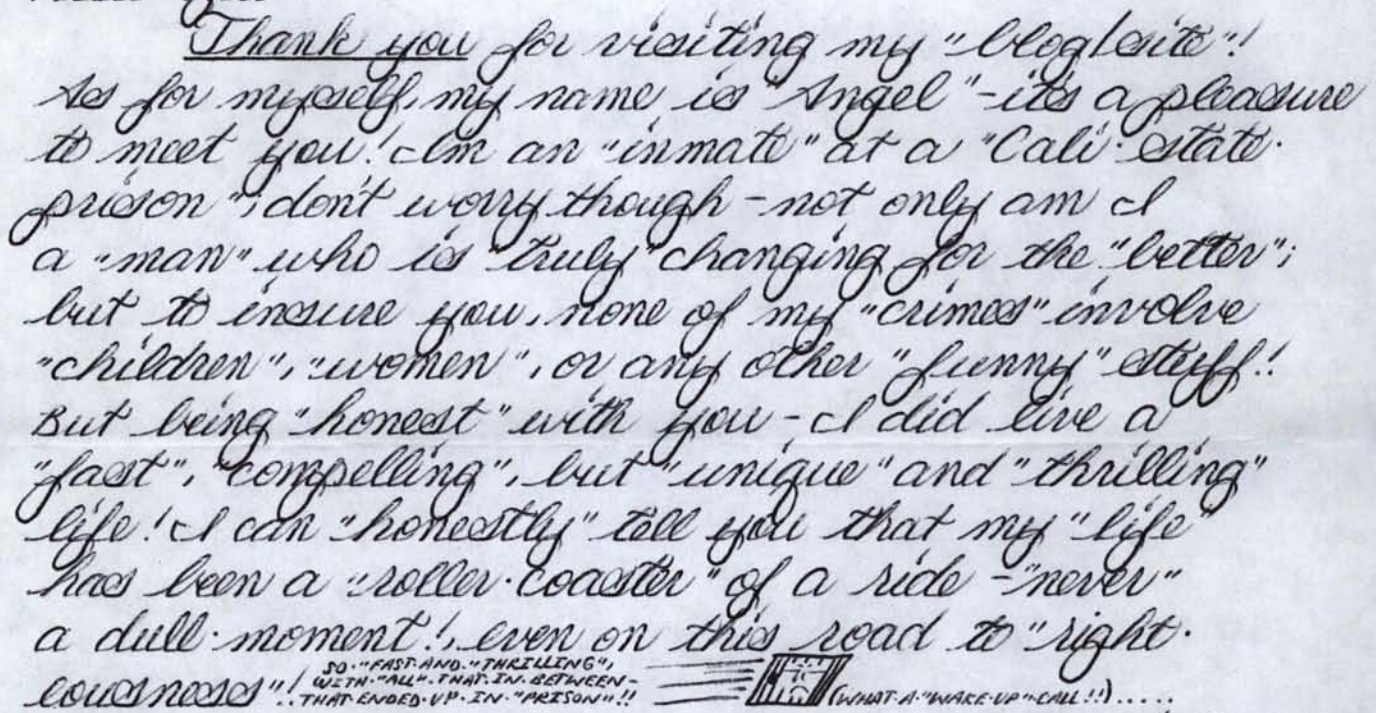 Thank you for visiting my "blog/site"!
As for myself, my name is "Angel" - it's a pleasure
to meet you! I'm an "inmate" at a "Cali·state·
prison"; don't worry though - not only am I
a "man" who is "truly" changing for the "better";
but to insure you, none of my "crimes" involve
"children", "women", or any other "funny" stuff!!
But being "honest" with you - I did live a
"fast", "compelling", but "unique" and "thrilling"
life! I can "honestly" tell you that my "life"
has been a "roller·coaster" of a ride - "never"
a dull·moment!, even on this road to "right·
eousness"!
SO·"FAST·AND·"THRILLING",
WITH·"ALL"·THAT·IN·BETWEEN-
..THAT·ENDED·UP·IN·"PRISON"!!
(WHAT·A·"WAKE·UP"·CALL!!).....